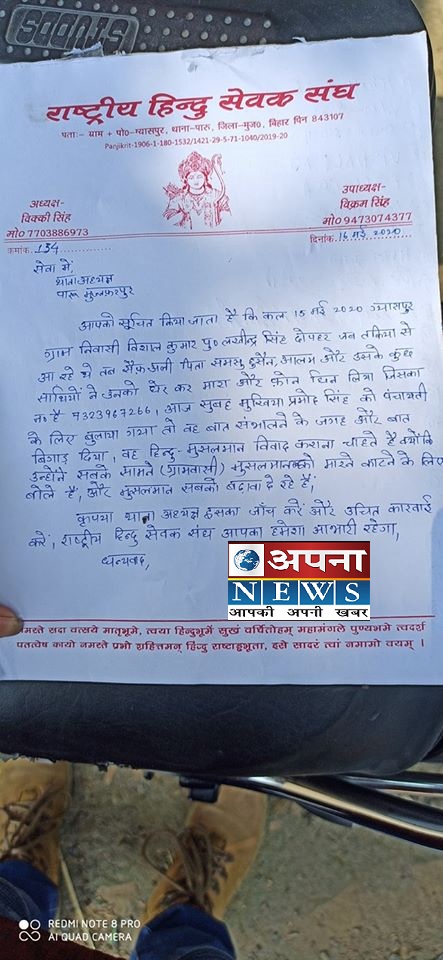 STUDDS
राष्ट्रीय हिन्दु सेवक संघ
पताः- ग्राम + पो०-ग्यासपुर, थाना-पारू, जिला-मुज०, बिहार पिन 843107
Panjikrit-1906-1-180-1532/1421-29-5-71-1040/2019-20
अध्यक्ष-
विक्की सिंह
मो० 7703886973
उपाध्यक्ष-
विक्रम सिंह
मो० 9473074377
क्रमांक. 134
दिनांक. 16 मई 2020
सेवा में,
थाना-अध्यक्ष
पारू मुजफ्फरपुर
आपको सुचित किया जाता है कि कल 15 मई 2020 ग्यासपुर
ग्राम निवासी विशाल कुमार पु० लखीन्द्र सिंह दोपहर जब तकिया से
आ रहे थे तब सैफ अली पिता समसु हुसैन, आलम और उसके कुछ
साथियों ने उनको घेर कर मारा और फोन छिन लिया जिसका
न० है 9323967266, आज सुबह मुखिया प्रमोद सिंह को पंचायती
के लिए बुलाया गया तो वह बात संभालने के जगह और बात
बिगाड़ दिया, वह हिन्दु-मुसलमान विवाद कराना चाहते हैं क्योंकि
उन्होंने सबके सामने (ग्रामवासी) मुसलमान को मारने काटने के लिए
बोले हैं, और मुसलमान सबको बढ़ावा दे रहे हैं,
कृपया थाना अध्यक्ष इसका जाँच करें और उचित कारवाई
करें, राष्ट्रीय हिन्दु सेवक संघ आपका हमेशा आभारी रहेगा,
धन्यवाद,
अपना
NEWS
आपकी अपनी खबर
नमस्ते सदा वत्सये मातृभूमे, त्वया हिन्दुभूमें सुखं वर्धितोहम् महामंगले पुण्यभमे त्वदर्श
पतत्वेष कायो नमस्ते प्रभो हिन्दु राष्टाङ्गभूता, इसे सादरं त्वां नमामो वयम् ।
REDMI NOTE 8 PRO
AI QUAD CAMERA